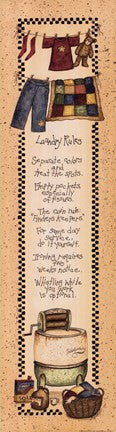 Laundry Rules
Separate colors
and
treat the spots.
Empty pockets,
especially
of tissues.
The coin rule:
Finders Keepers.
For same day
service,
do it yourself.
Ironing requires
two
weeks notice.
Whistling while
you work
is optional.